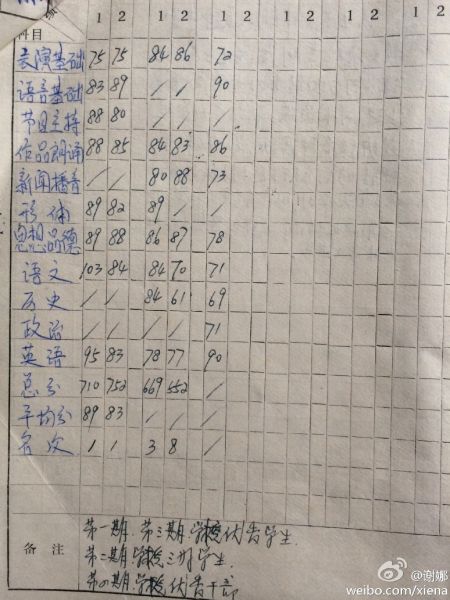 科目 1 2 1 2 1 2 1 2 1 2
表演基础 75 75 84 86 72
语言基础 83 89 / / 90
节目主持 88 80 / / /
作品朗诵 88 85 84 83 86
新闻播音 / / 80 88 73
形体 89 82 89 / /
思想品德 89 88 86 87 78
语文 103 84 84 70 71
历史 / / 84 61 69
政治 / / / / 71
英语 95 83 78 77 90
总分 710 752 669 552 /
平均分 89 83 / / /
名次 1 1 3 8 /
备注
第一期.第三期.学校优告学生.
第二期.学校三好学生.
第四期.学校优告干部
@谢娜
weibo.com/xiena